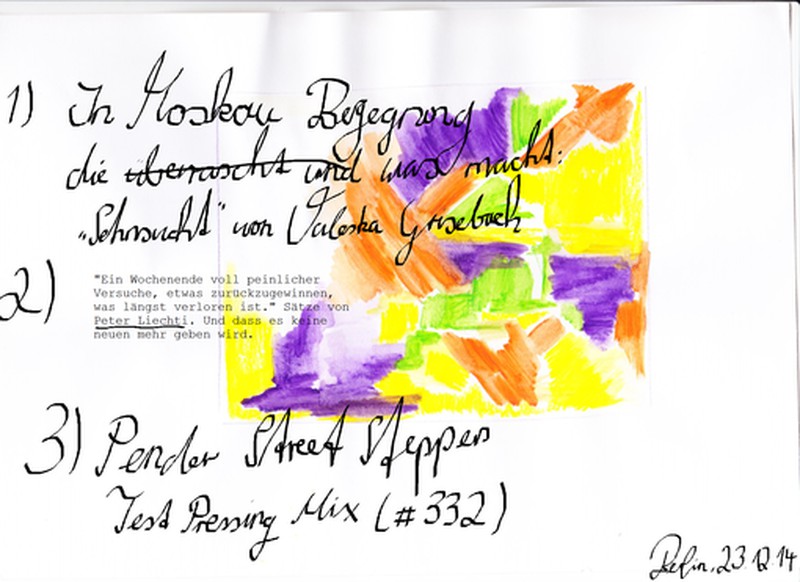 1) In Moskau Begegnung
die überrascht und was macht:
"Sehnsucht" von Valeska Grisebach
2) "Ein Wochenende voll peinlicher
Versuche, etwas zurückzugewinnen,
was längst verloren ist." Sätze von
Peter Liechti. Und dass es keine
neuen mehr geben wird.
3) Pender Street Steppers
Test Pressing Mix (#332)
Berlin, 23.12.14